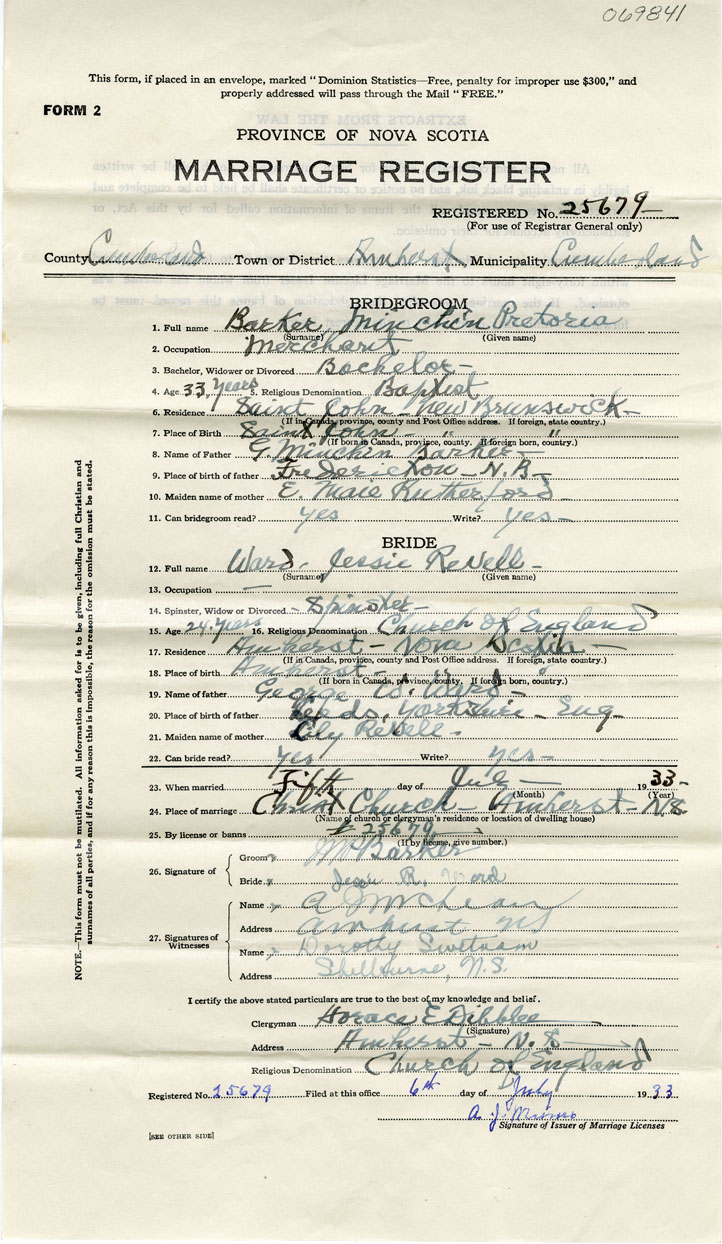 069841
This form, if placed in an envelope, marked "Dominion Statistics—Free, penalty for improper use $300," and
properly addressed will pass through the Mail "FREE."
FORM 2
PROVINCE OF NOVA SCOTIA
MARRIAGE REGISTER
REGISTERED No. 25679
(For use of Registrar General only)
County Cumberland Town or District Amherst Municipality Cumberland
BRIDEGROOM
1. Full name Barker, Minchin Pretoria
(Surname) (Given name)
2. Occupation Merchant
3. Bachelor, Widower or Divorced Bachelor-
4. Age 33 years 5. Religious Denomination Baptist
6. Residence Saint John - New Brunswick-
(If in Canada, province, county and Post Office address. If foreign, state country.)
7. Place of Birth Saint John - " "
(If born in Canada, province, county. If foreign born, country.)
8. Name of Father G. Minchin Barker-
9. Place of birth of father Fredericton - N.B-
10. Maiden name of mother E. Maie Rutherford
11. Can bridegroom read? yes Write? yes-
BRIDE
12. Full name Ward, Jessie Revell-
(Surname) (Given name)
13. Occupation —
14. Spinster, Widow or Divorced Spinster-
15. Age 24 years 16. Religious Denomination Church of England
17. Residence Amherst - Nova Scotia-
(If in Canada, province, county and Post Office address. If foreign, state country.)
18. Place of birth Amherst- " "
(If born in Canada, province, county. If foreign born, country.)
19. Name of father George W. Ward-
20. Place of birth of father Leeds, Yorkshire - Eng-
21. Maiden name of mother Lily Revell-
22. Can bride read? yes Write? yes-
23. When married Fifth day of July 1933-
(Month) (Year)
24. Place of marriage Christ Church - Amherst - N.S
(Name of church or clergyman's residence or location of dwelling house)
25. By license or banns # 25679
(If by license, give number.)
26. Signature of
Groom MPBarker
Bride Jessie R. Ward
27. Signatures of Witnesses
Name
Address Amherst NS
Name Dorothy Swetnam
Address Shelburne, N.S.
I certify the above stated particulars are true to the best of my knowledge and belief.
Clergyman Horace E Dibblee
(Signature)
Address Amherst - N.S
Religious Denomination Church of England
Registered No. 25679 Filed at this office 6th day of July 1933
A. J.
Signature of Issuer of Marriage Licenses
[SEE OTHER SIDE]
NOTE.—This form must not be mutilated. All information asked for is to be given, including full Christian and
surnames of all parties, and if for any reason this is impossible, the reason for the omission must be stated.